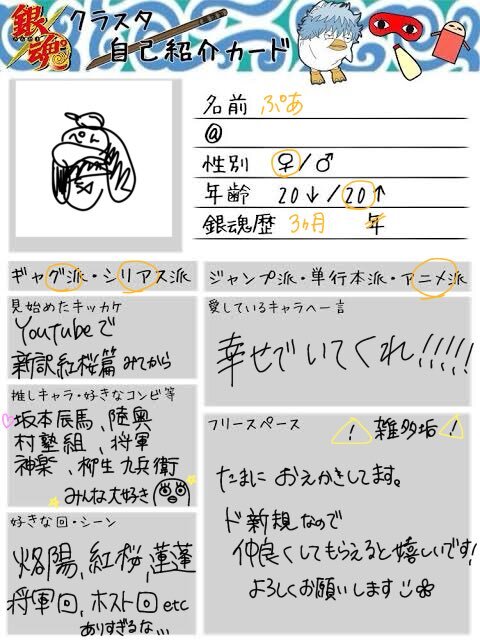 銀魂
クラスタ
自己紹介カード
ぺん
名前 ぷあ
@
性別 ♀/♂
年齢 20↓/20↑
銀魂歴 3ヶ月 年
ギャグ派・シリアス派
ジャンプ派・単行本派・アニメ派
見始めたキッカケ
Youtubeで
新訳紅桜篇 みてから
推しキャラ・好きなコンビ等
坂本辰馬、陸奥
村塾組、将軍
神楽、柳生九兵衛
みんな大好き
好きな回・シーン
烙陽、紅桜、蓮蓬
将軍回、ホスト回 etc
ありすぎるな...
愛しているキャラへ一言
幸せでいてくれ!!!!!
フリースペース
! 雑多垢 !
たまに おえかきしてます。
ド新規なので
仲良くしてもらえると嬉しいです!
よろしくお願いします